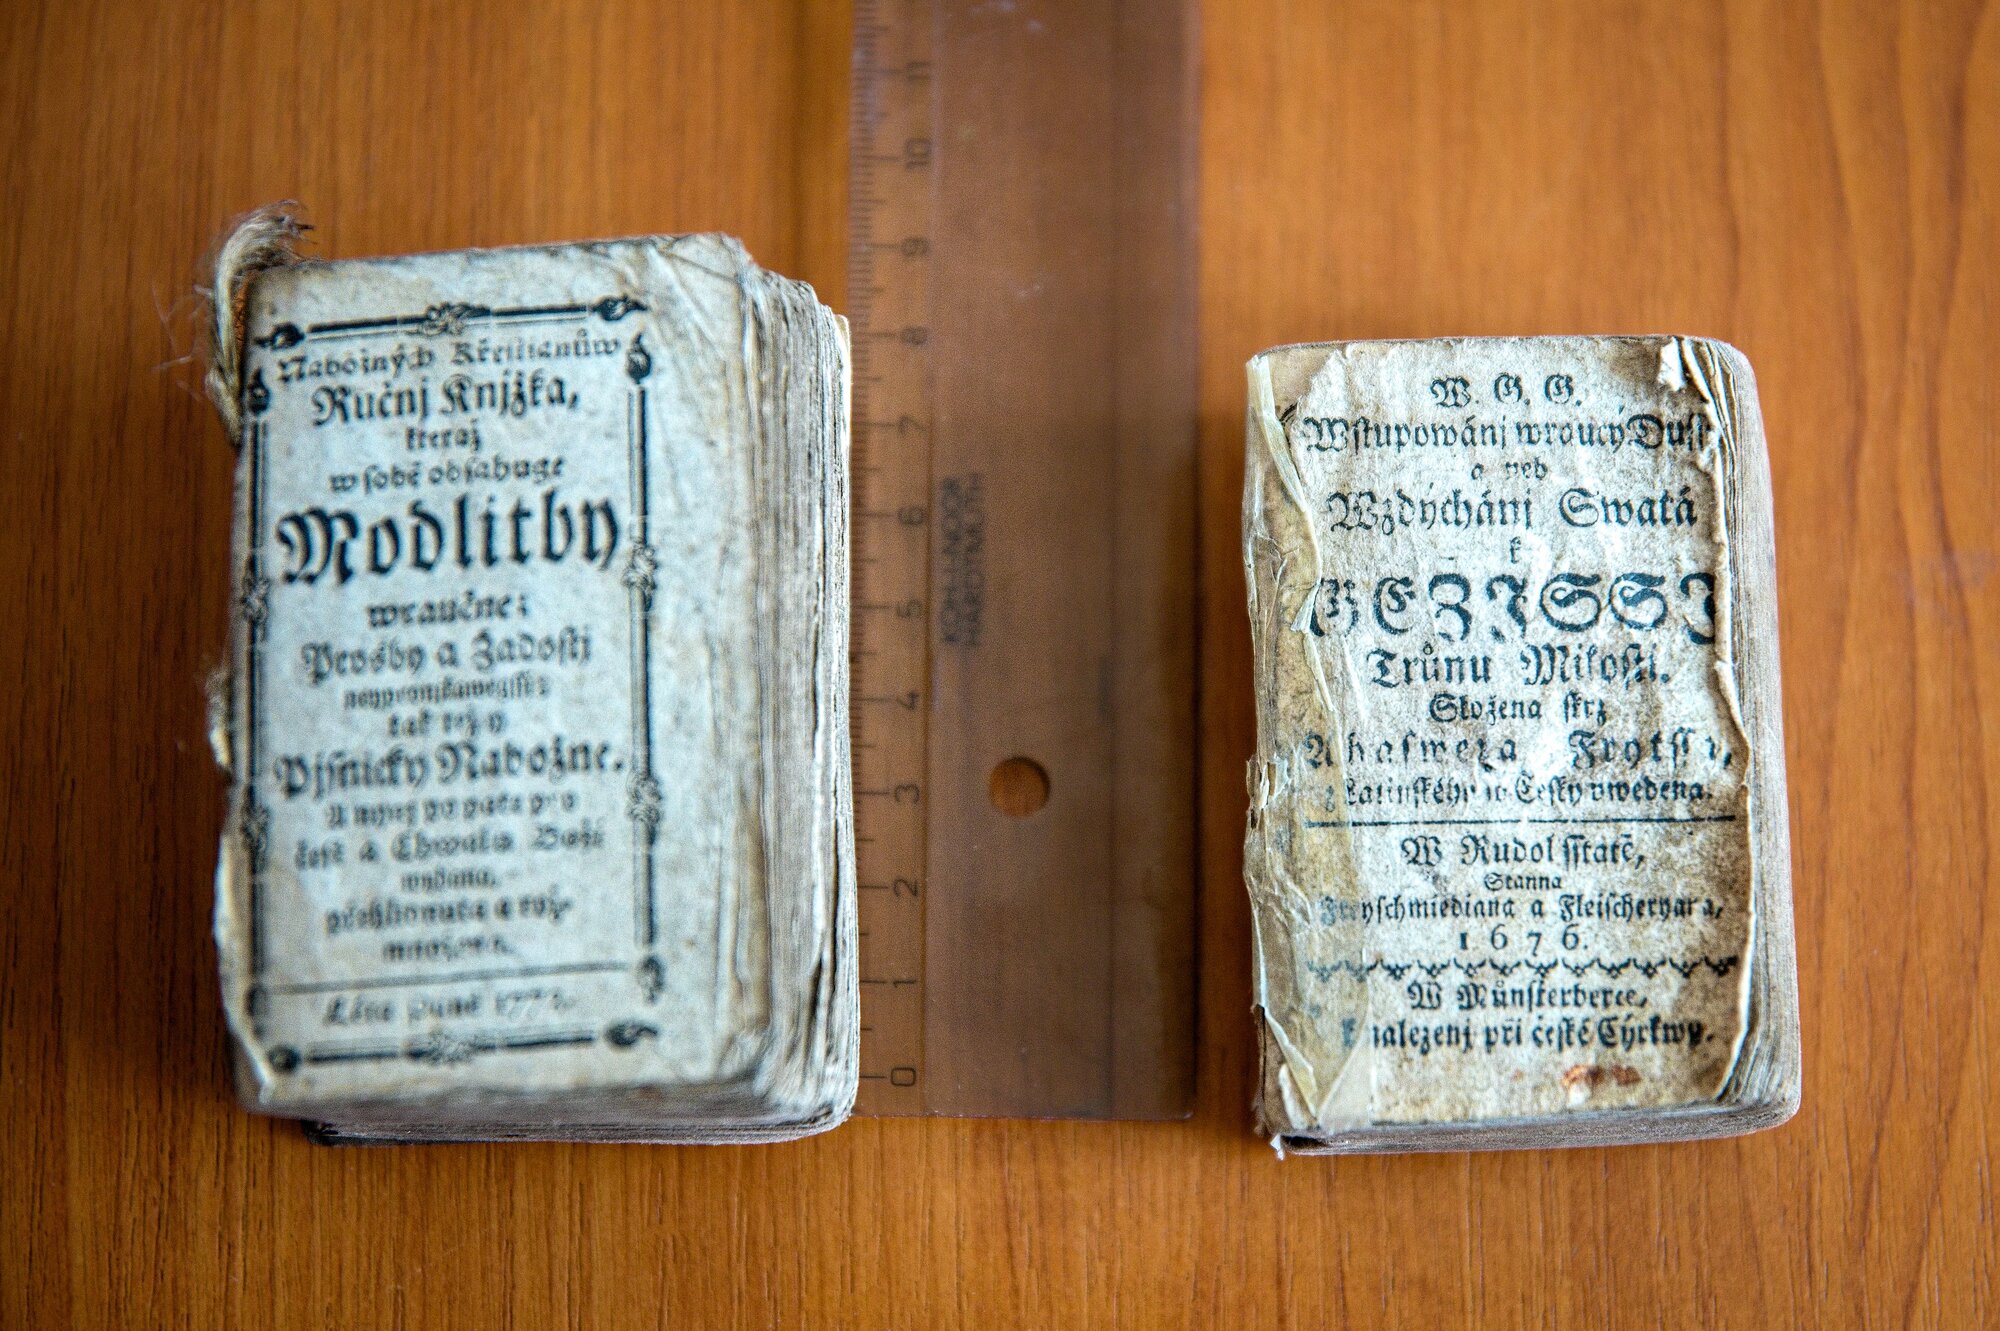 Nábožných Křestianůw
Ručnj Knjžka,
kteráž
w sobě obsahuge
Modlitby
wraučné:
Prosby a Žádosti
tak též y
Pjsničky Nábožné.
čest a Chwálu Boží
wydaná,
Léta Páně
11
10
9
8
7
6
5
4
3
2
1
0
KOH-I-NOOR
HARDTMUTH
W. G. G.
Wstupowánj wraucý
a neb
Wzdýchánj Swatá
k
GEZJSSJ
Trůnu Milosti.
Složena skrz
Ahaswera
Latinského w Český uwedena.
W Rudolsstatě,
Stanna
Freyschmiediana a Fleischeryana,
1676.
W Můnsterberce,
k nalezenj při české Cýrkwy.